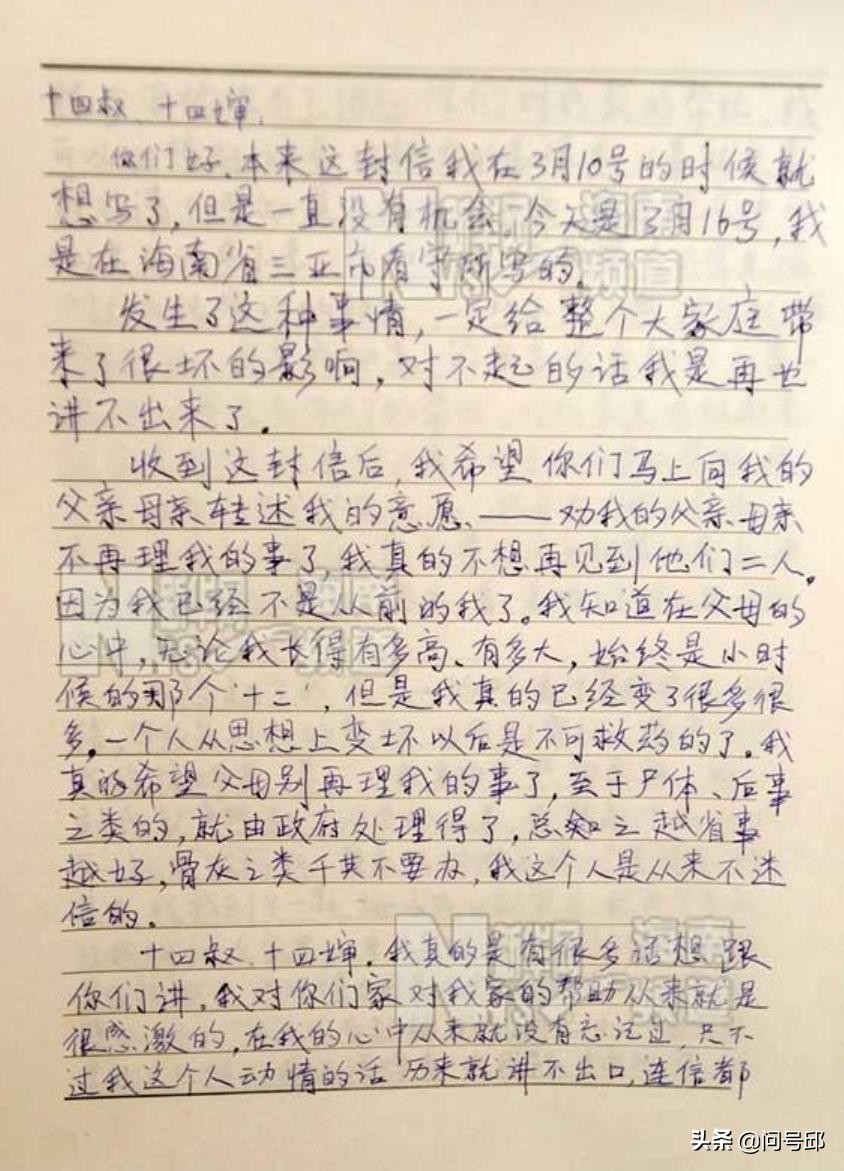 十四叔、十四婶,
你们好,本来这封信我在3月10号的时候就
想写了,但是一直没有机会。今天是3月16号,我
是在海南省三亚市看守所写的。
发生了这种事情,一定给整个大家庭带
来了很坏的影响,对不起的话我是再也
讲不出来了。
收到这封信后,我希望你们马上向我的
父亲母亲转述我的意愿、——劝我的父亲、母亲
不再理我的事了,我真的不想再见到他们二人。
因为我已经不是从前的我了。我知道在父母的
心中,无论我长得有多高、有多大,始终是小时
候的那个'十二',但是我真的已经变了很多很
多。一个人从思想上变坏以后是不可救药的了。我
真的希望父母别再理我的事了,至于尸体、后事
之类的,就由政府处理得了,总知之越省事
越好,骨灰之类千其不要办,我这个人是从来不迷
信的。
十四叔、十四婶。我真的是有很多话想跟
你们讲,我对你们家对我家的帮助从来就是
很感激的,在我的心中从来就没有忘记过,只不
过我这个人动情的话历来就讲不出口,连信都
头条 @问号邱